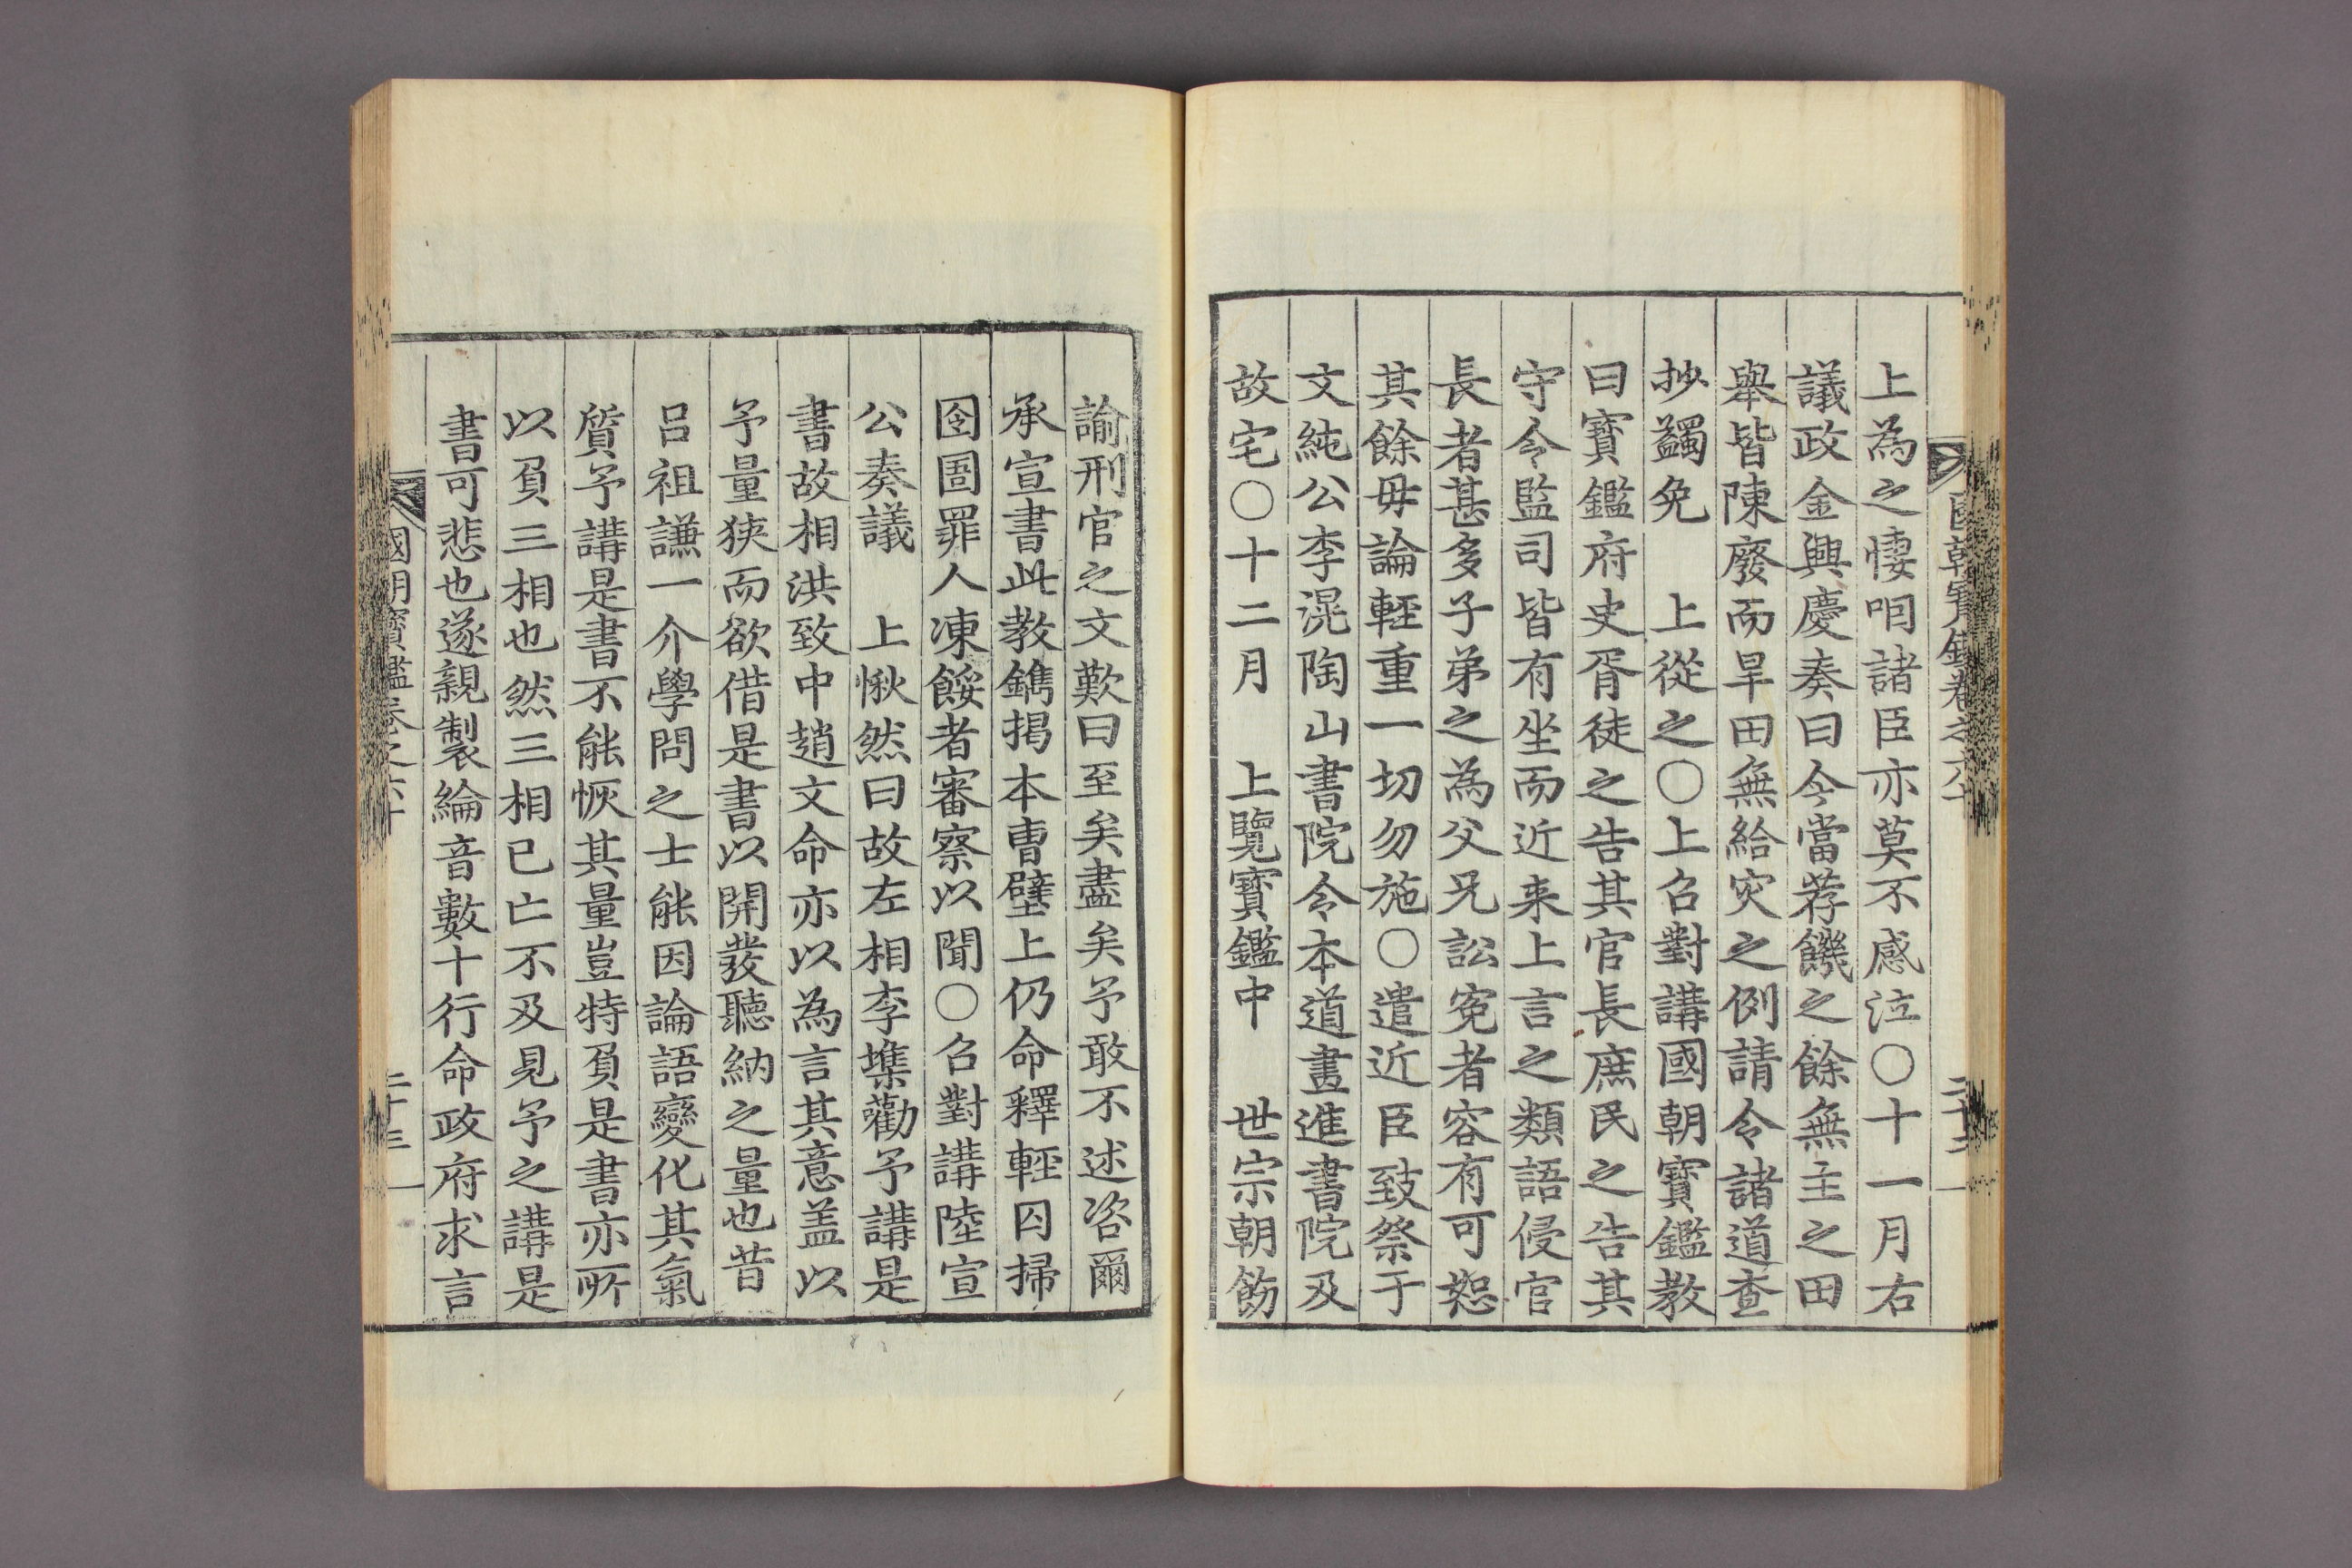 國朝寶鑑卷之六十
上為之悽咽諸臣亦莫不感泣〇十一月右
議政金興慶奏曰今當荐饑之餘無主之田
舉皆陳廢而旱田無給灾之例請令諸道查
抄蠲免 上從之〇上召對講國朝寶鑑教
曰寶鑑府史胥徒之告其官長庶民之告其
守令監司皆有坐而近来上言之類語侵官
長者甚多子弟之為父兄訟寃者容有可恕
其餘毋論輕重一切勿施〇遣近臣致祭于
文純公李滉陶山書院令本道畫進書院及
故宅〇十二月 上覽寶鑑中 世宗朝飭
諭刑官之文歎曰至矣盡矣予敢不述咨爾
承宣書此教鐫揭本曹壁上仍命釋輕囚掃
囹圄罪人凍餒者審察以聞〇召對講陸宣
公奏議 上愀然曰故左相李㙫勸予講是
書故相洪致中趙文命亦以為言其意盖以
予量狹而欲借是書以開發聽納之量也昔
呂祖謙一介學問之士能因論語變化其氣
質予講是書不能恢其量豈特負是書亦所
以負三相也然三相已亡不及見予之講是
書可悲也遂親製綸音數十行命政府求言
國朝寶鑑卷之六十 二十三